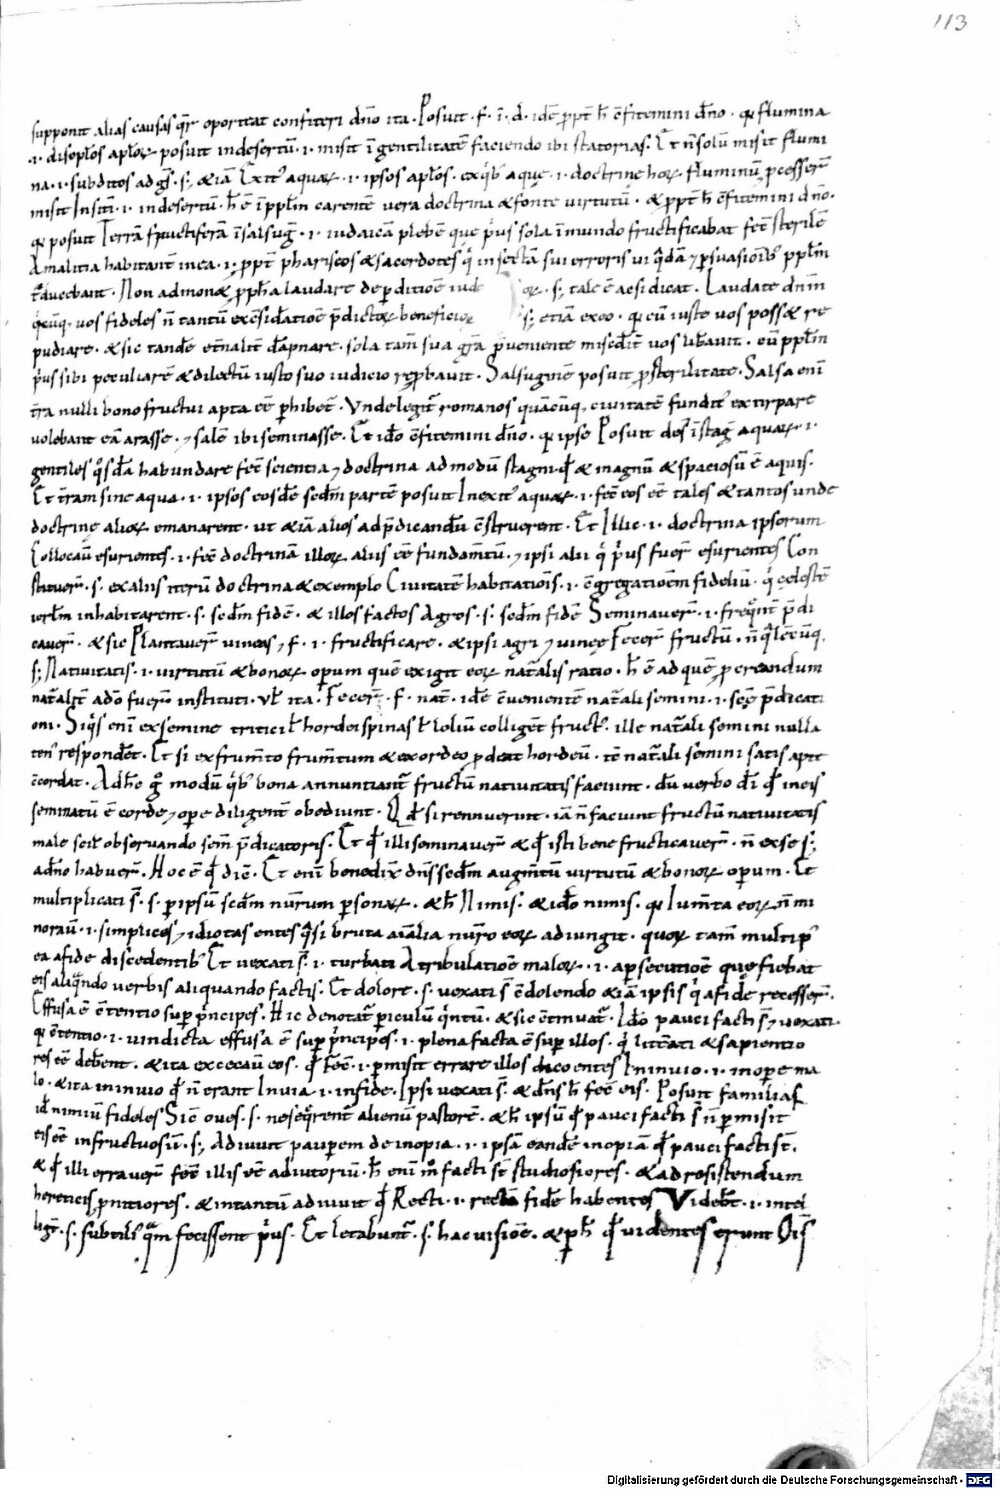 113
supponit alias causas qr̄ oporteat confiteri dn̄o ita. Posuit. f. ī. d. idē ꝓpt̄ h̄ ꝯfitemini dn̄o. qꝛ flumina
.i. discipl̄os apl̄oꝝ posuit in desertū. i. misit ī gentilitatē faciendo ibi statorias. Et n̄ solū misit flumi
na. i. subditos ad gs̄. sꝫ & iā Exit' aquaꝝ. i. ipsos apl̄os. ex qͥb' aque. i. doctrine hoꝝ fluminū ꝓcesserū
misit In sitī. i. in desertū. h̄ ē ī ppl̄m carentē vera doctrina & fonte virtutū. & ꝓpt̄ h̄ ꝯfitemini dn̄o.
qꝛ posuit Terrā fructiferā ī salsuḡ. i. iudaicā plebē que pͥus sola ī mundo fructificabat fec̄ sterilē
A malitia habitantiū in ea. i. ꝓpt̄ phariseos & sacerdotes qͥ infectā sui erroris vi qͣdā ⁊ ꝑsuasioīb' ppl̄m
Non admonꝫ ꝓph̄a laudare de ꝑditiōe iude oꝝ. sꝫ tale ē ac si dicat. Laudate dn̄m
vos fideles n̄ tantū ex ꝯsid̄atiōe p̄dictoꝝ beneficioꝝ sꝫ etiā ex eo. qꝛ cū iuste vos poss& re
pudiare. & sic tandē et̄nalit̄ dāpnare. sola tam̄ sua gr̄a p̄veniente mis̄cdit̄ vos lib̄auit. eū ppl̄m
pͥus sibi peculiarē & dilectū iusto suo iudicio reꝓbauit. Salsuginē posuit ꝓ sterilitate. Salsa enī
tr̄a nulli bono fructui apta eē ꝑhibet̄. Unde legit̄ romanos quācūqꝫ ciuitatē fundit' extirpare
volebant eā arasse. ⁊ salē ibi seminasse. Et id̄o ꝯfitemini dn̄o. qꝛ ipse Posuit des̄ ī stag̅ aquaꝝ. i.
gentiles qͦsdā habundare fec̄ scientia ⁊ doctrina ad modū stagni qd̄ & magnū & spaciosū ē aquis.
Et tr̄am sine aqua. i. ipsos eosdē scd̄m partē posuit In exit' aquaꝝ. i. fec̄ eos eē tales & tantos unde
doctrinę alioꝝ emanarent. ut & iā alios ad p̄dicandū ꝯstruerent. Et Illic. i. doctrina ipsorum
Collocauͥ esurientes. i. fec̄ doctrinā illoꝝ aliis eē fundam̄tū. ⁊ ipsi alii qͥ pͥus fuer̄ esurientes Con
stituer̄. s. ex aliis iterū doctrina & exemplo Civitatē habitatiōis. i. ꝯgregatioēm fideliū. qͥ celestē
ierl̄m inhabitarent. s. scd̄m fidē. & illos factos Agros. s. scd̄m fidē Seminauer̄. i. freqn̄t p̄di
cauer̄. & sic Plantauer̄ vineas ⁊ f. i. fructificare. & ipsi agri ⁊ vineę Fecer̄ fructū. n̄ qͣlecūqꝫ
sꝫ Nativitatis. i. virtutū & bonoꝝ opum quē exigit eoꝝ nat̄alis ratio. h̄ ē ad quē ꝓcreandum
nat̄alit̄ a dō fuer̄ instituti. vl̄ ita. Fecer̄. f. nat̄. idē ꝯvenientē nat̄ali semini. i. scē p̄dicati
oni. Siqͥs enī ex semine tritici l̄ hordei spinas l̄ loliū colliget fruct'. ille nat̄ali semini nulla
ten' respond̄et. Et si ex frum̄to frum̄tum & ex ordeo ꝓdeat hordeū. tē nat̄ali semini satis apte
ꝯcordat. Ad hc̄ g̊ modū qͥb' bona annuntiant̄ fructū nativitatis faciunt. dū verbo dī qd̄ in eis
seminatū ē corde ⁊ ope diligent̄ obediunt. Qd̄ si rennuerunt. iā n̄ faciunt fructū nativitatis
male scil̄ observando sem̄ p̄dicatoris. Et qd̄ illi seminauer̄ & qd̄ isti bene fructicauer̄. n̄ ex se sꝫ
a dn̄o habuer̄. Hoc ē qd̄ dic̄. Et enī benedix̄ dn̄s scd̄m augm̄tū virtutū & bonoꝝ opum. Et
multiplicati s̄. s. ꝑ ipsum scd̄m num̄rum ꝑsonaꝝ. & h̄ Nimis. & id̄o nimis. qꝛ Ium̄ta eoꝝ n̄ mi
norauͥ. i. simplices ⁊ idiotas entes qͣsi bruta aīalia num̄o eoꝝ adiungit. quoꝝ tam̄ multi p'
ea a fide discedentib' Et vexati s̄. i. turbati A tribulatiōe maloꝝ. i. a ꝑsecutiōe quę fiebat
eis aliqn̄do verbis aliquando factis. Et dolore. s. vexati s̄ ꝯdolendo & iā ipsis qͥ a fide recesser̄.
Effusa ē ꝯtentio sup pͥncipes. Hic denotat̄ ꝑiculū qͥntū. & sic ꝯtinuat̄. Id̄o pauci facti s̄ ⁊ vexati.
qꝛ ꝯtentio. i. vindicta effusa ē sup pͥncipes. i. plena facta ē sup illos. qͥ litt̄ati & sapientio
res eē deb̄ent. & ita excecauͥ eos. qd̄ Fec̄. i. ꝑmisit errare illos docentes In invio. i. in oꝑe ma
lo. & ita in invio qd̄ n̄ erant In via. i. in fide. Ipsi vexati s̄. & dn̄s h̄ fec̄ eis. Posuit familias
id̄ nimiū fideles Sic̄ oves. s. ne seq̄rent̄ alienū pastorē. & h̄ ipsū qd̄ pauci facti s̄ n̄ ꝑmisit
eis eē infructuosū. sꝫ Adiuuit pauperem de inopia. i. ipsā eandē inopiā qd̄ pauci facti st̄.
& qd̄ illi errauer̄ fec̄ illis eē adiutoriū. h̄ enī in̄ facti sē studiosiores. & ad resistendum
hereticis ꝓnitiores. & in tantū adiuuit qd̄ Recti. i. rectā fidē habentes Videb̄t. i. intel
lig̅t. s. subtili' qͣm fecissent pͥus. Et letabunt̄. s. hac visiōe. & ꝑ h̄ qd̄ videntes erunt Oīs
Digitalisierung gefördert durch die Deutsche Forschungsgemeinschaft - DFG